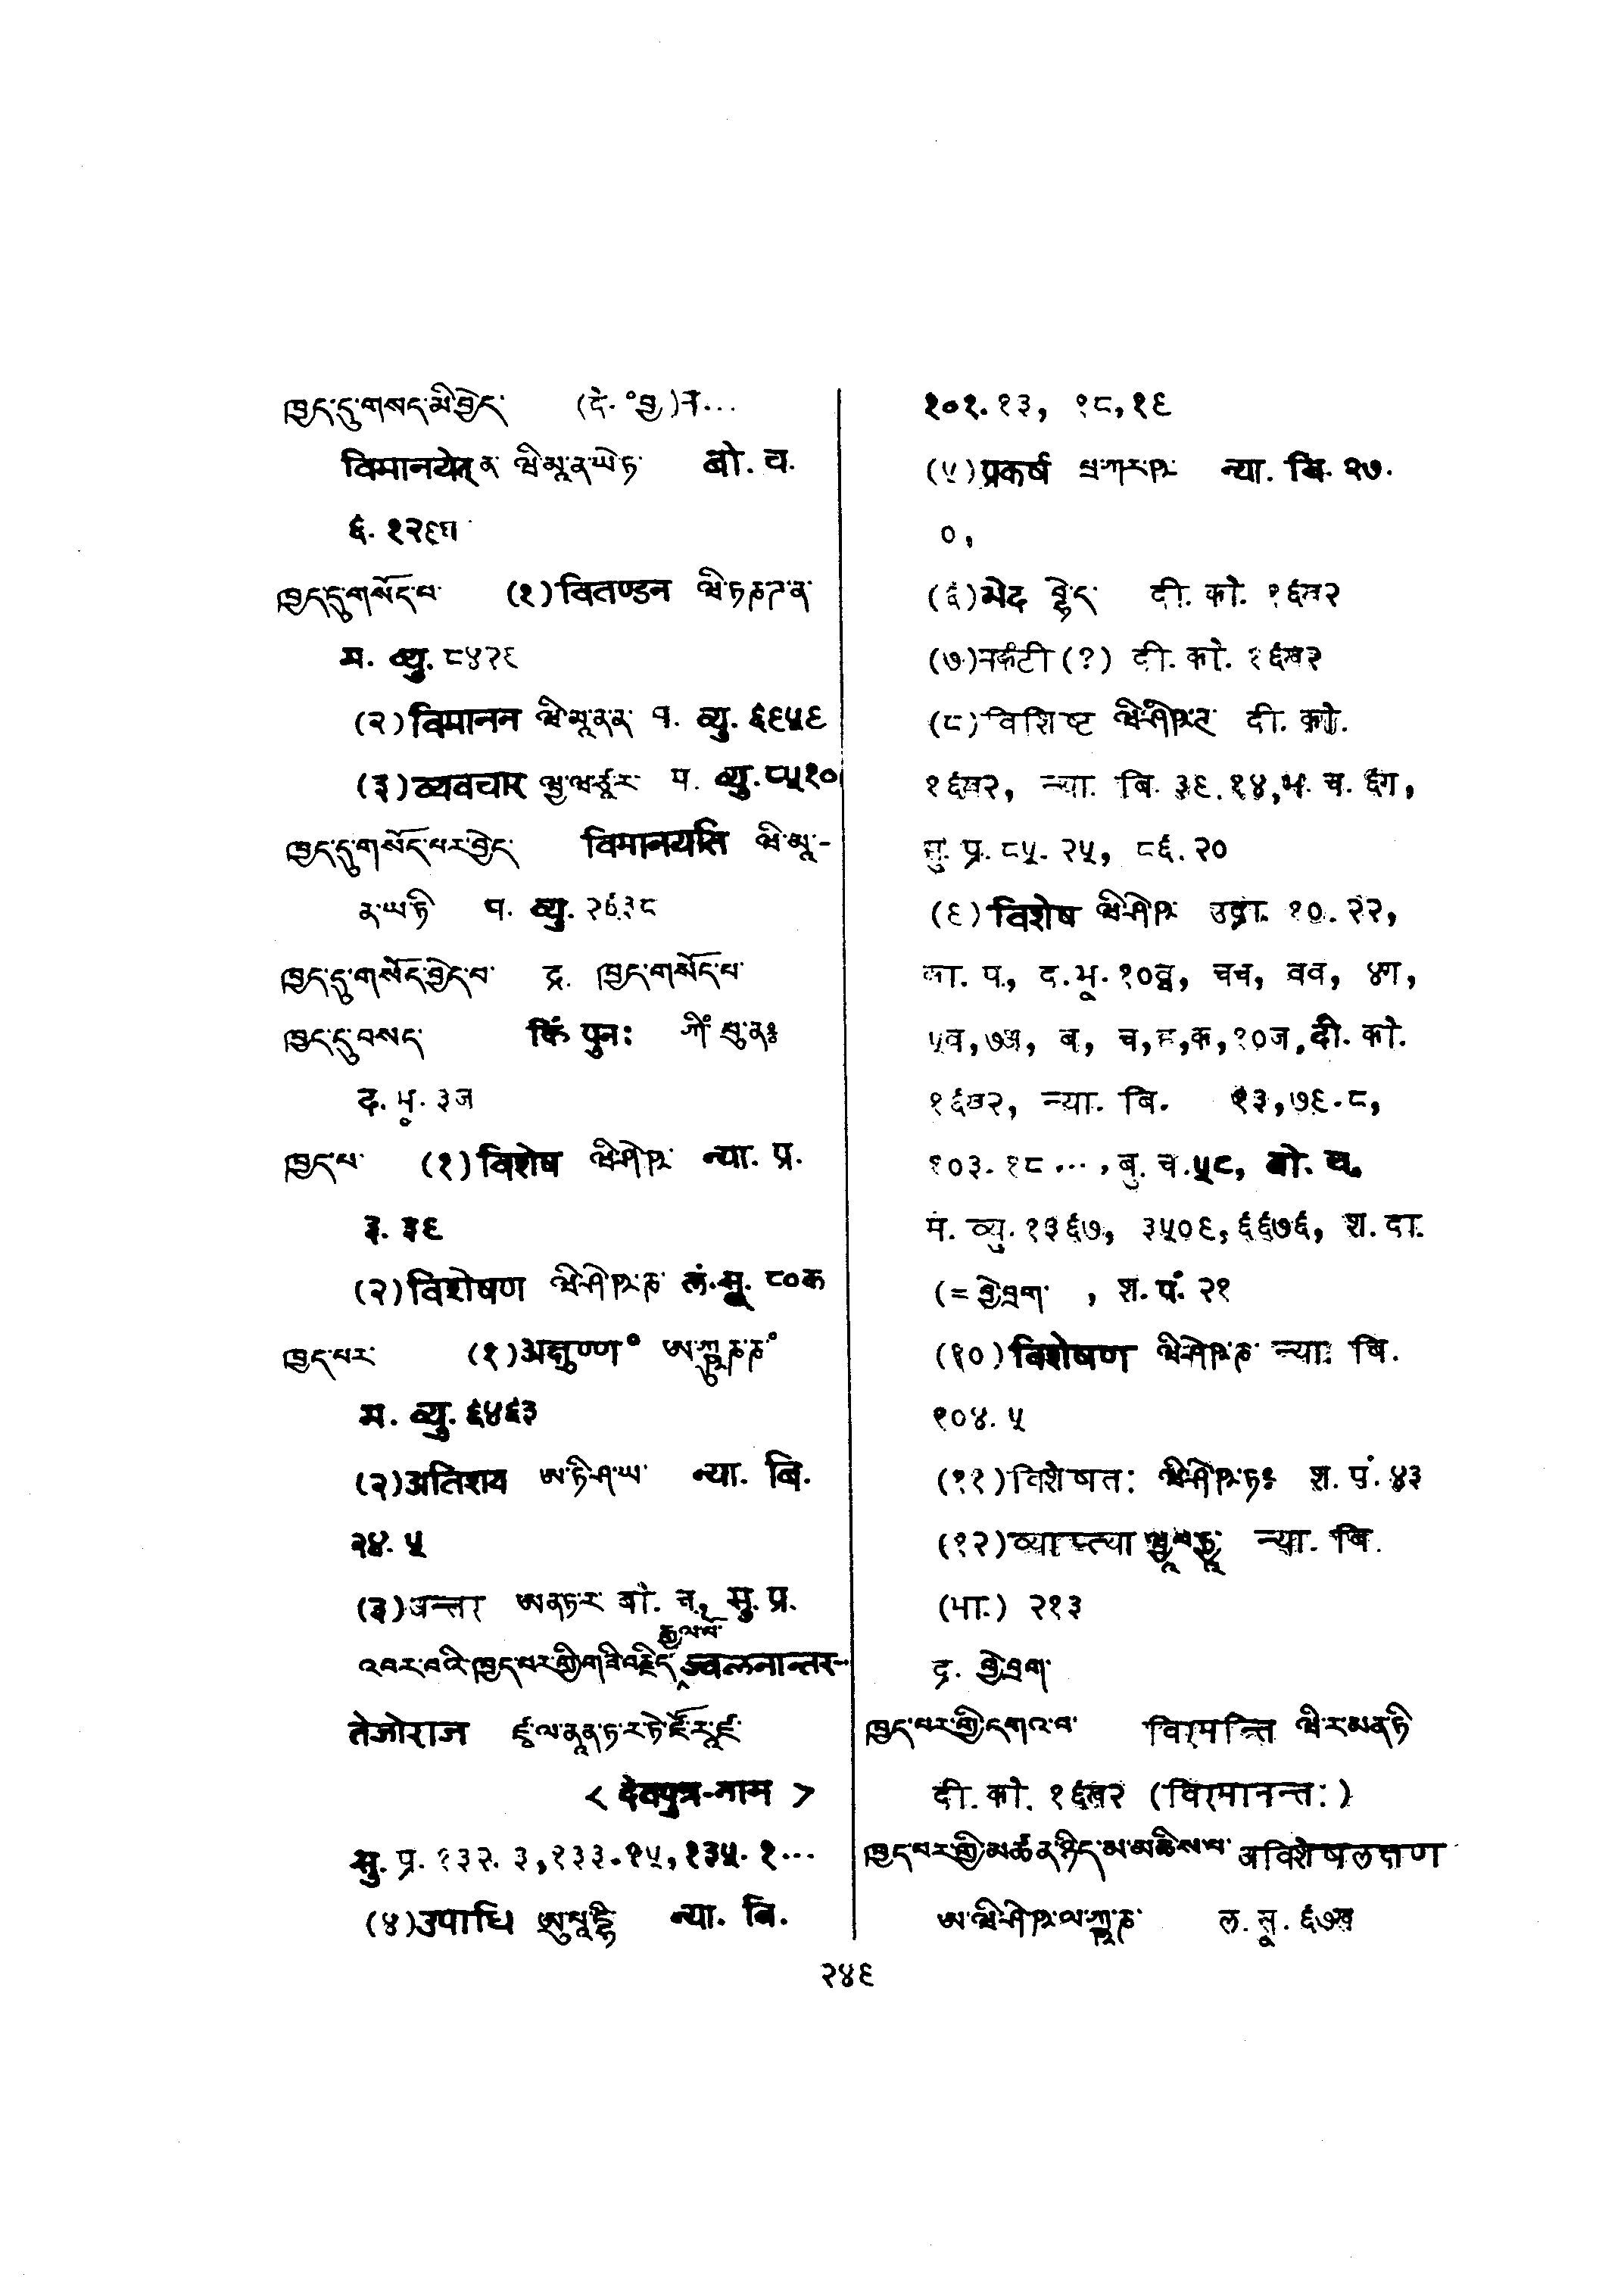 ཁྱད་དུ་གསད་མི་བྱེད་ (दे. °བྱ)न...
विमानयेत् न ཝི་མཱ་ན་ཡེ་ཏ་ बो. च.
६. १२९घ
ཁྱད་དུ་གསོད་པ་ (१)वितण्डन ཝི་ཏཎྜ་ན་
म. व्यु. ८४२९
(२)विमानन ཝི་མཱ་ན་ན་ म. व्यु. ६९५९
(३)व्यवचार ཝྱ་ཝ་ཙཱ་ར་ म. व्यु. ८५१०
ཁྱད་དུ་གསོད་པར་བྱེད་ विमानयति ཝི་མཱ་-
ན་ཡ་ཏི म. व्यु. २६३८
ཁྱད་དུ་གསོད་བྱེད་པ་ द्र. ཁྱད་གསོད་པ་
ཁྱད་དུ་བསད་ किं पुनः ཀིཾ་པུ་ནཿ
द. भू. ३ज
ཁྱད་པ་ (१)विशेष ཝི་ཤེ་ཥ་ न्या. प्र.
३. ३९
(२)विशेषण ཝི་ཤེ་ཥ་ཎ་ लं. सू. ८०क
ཁྱད་པར་ (१)अक्षुण्ण° ཨ་ཀྵུཎ་ཎ°
म. व्यु. ६४६३
(२)अतिशय ཨ་ཏི་ཤ་ཡ་ न्या. बि.
२४. ५
(३)अन्तर ཨནཏ་ར་ बो. च, सु. प्र.
འབར་བའི་ཁྱད་པར་གྱི་གཟི་བརྗིད་རྒྱལ་པོ་ ज्वलनान्तर-
तेजोराज ཛྭ་ལ་ནཱནྟ་ར་ཏེ་ཛོ་རཱ་ཛ་
< देवपुत्र-नाम >
सु. प्र. १३२. ३,१३३.१५,१३५. १...
(४)उपाधि ཨུ་པཱ་དྷི न्या. बि.
१०१. १३, १८,१९
(५)प्रकर्ष པྲ་ཀར་ཥ་ न्या. बि. २७.
०,
(६)भेद བྷེ་ད་ दी. को. १६ख२
(७)नर्कटी(?) दी. को. १६ख२
(८)विशिष्ट ཝི་ཤིཥྚ་ दी. को.
१६ख२, न्या. बि. ३९.१४,भ. च. ६ग,
सु. प्र. ८५. २५, ८६.२०
(९)विशेष ཝི་ཤེ་ཥ་ उदा. १०. २२,
का. प., द.भू. १०, चच, वव, ४ग,
५व,७अ, ब, च,ह,क,१०ज,दी. को.
१६ख२, न्या. बि. १३,७९.८,
१०३. १८ ... , बु. च.५८, बो. च,
म. व्यु. १३६७, ३५०९,६६७६, श. दा.
(= བྱེ་བྲག་ , श. पं. २१
(१०)विशेषण ཝི་ཤེ་ཥ་ཎ་ न्या. बि.
१०४. ५
(११)विशेषतः ཝི་ཤེ་ཥ་ཏཿ श. पं. ४३
(१२)व्याप्त्या ཝྱཱ་པ་ཏྱཱ་ न्या. बि.
(भा.) २१३
द्र. བྱེ་བྲག་
ཁྱད་པར་གྱི་དགའ་བ་ विरमन्ति ཝི་ར་མན་ཏི
दी. को. १६ख२ (विरमानन्तः)
ཁྱད་པར་གྱི་མཚན་ཉིད་མ་མཆིས་པ་ अविशेषलक्षण
ཨ་ཝི་ཤེ་ཥ་ལ་ཀྵ་ཎ་ ल. सू. ६७ख
२४९